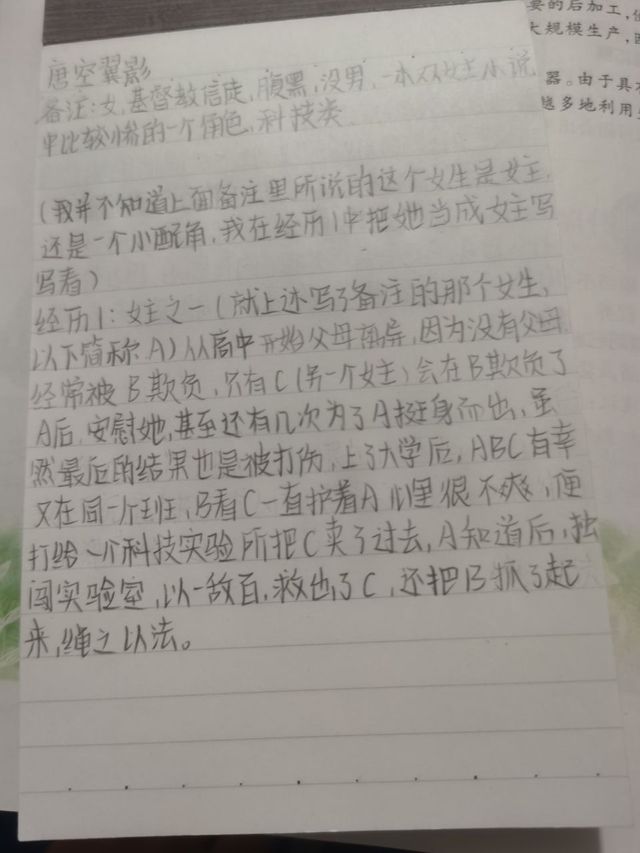 要的后加工,
大规模生产,
器。由于具
越多地利用
唐空翼影
备注:女,基督教信徒,腹黑,没男,一本双女主小说
中比较惨的一个角色,科技类
(我并不知道上面备注里所说的这个女生是女主,
还是一个小配角,我在经历1中把她当成女主写
写看)
经历1:女主之一(就上述写了备注的那个女生,
以下简称A)从高中开始父母离异,因为没有父母
经常被B欺负,只有C(另一个女主)会在B欺负了
A后,安慰她,甚至还有几次为了A挺身而出,虽
然最后的结果也是被打伤,上了大学后,ABC有幸
又在同一个班,B看C一直护着A心里很不爽,便
打给一个科技实验所把C卖了过去,A知道后,独
闯实验室,以一敌百,救出了C,还把B抓了起
来,绳之以法。